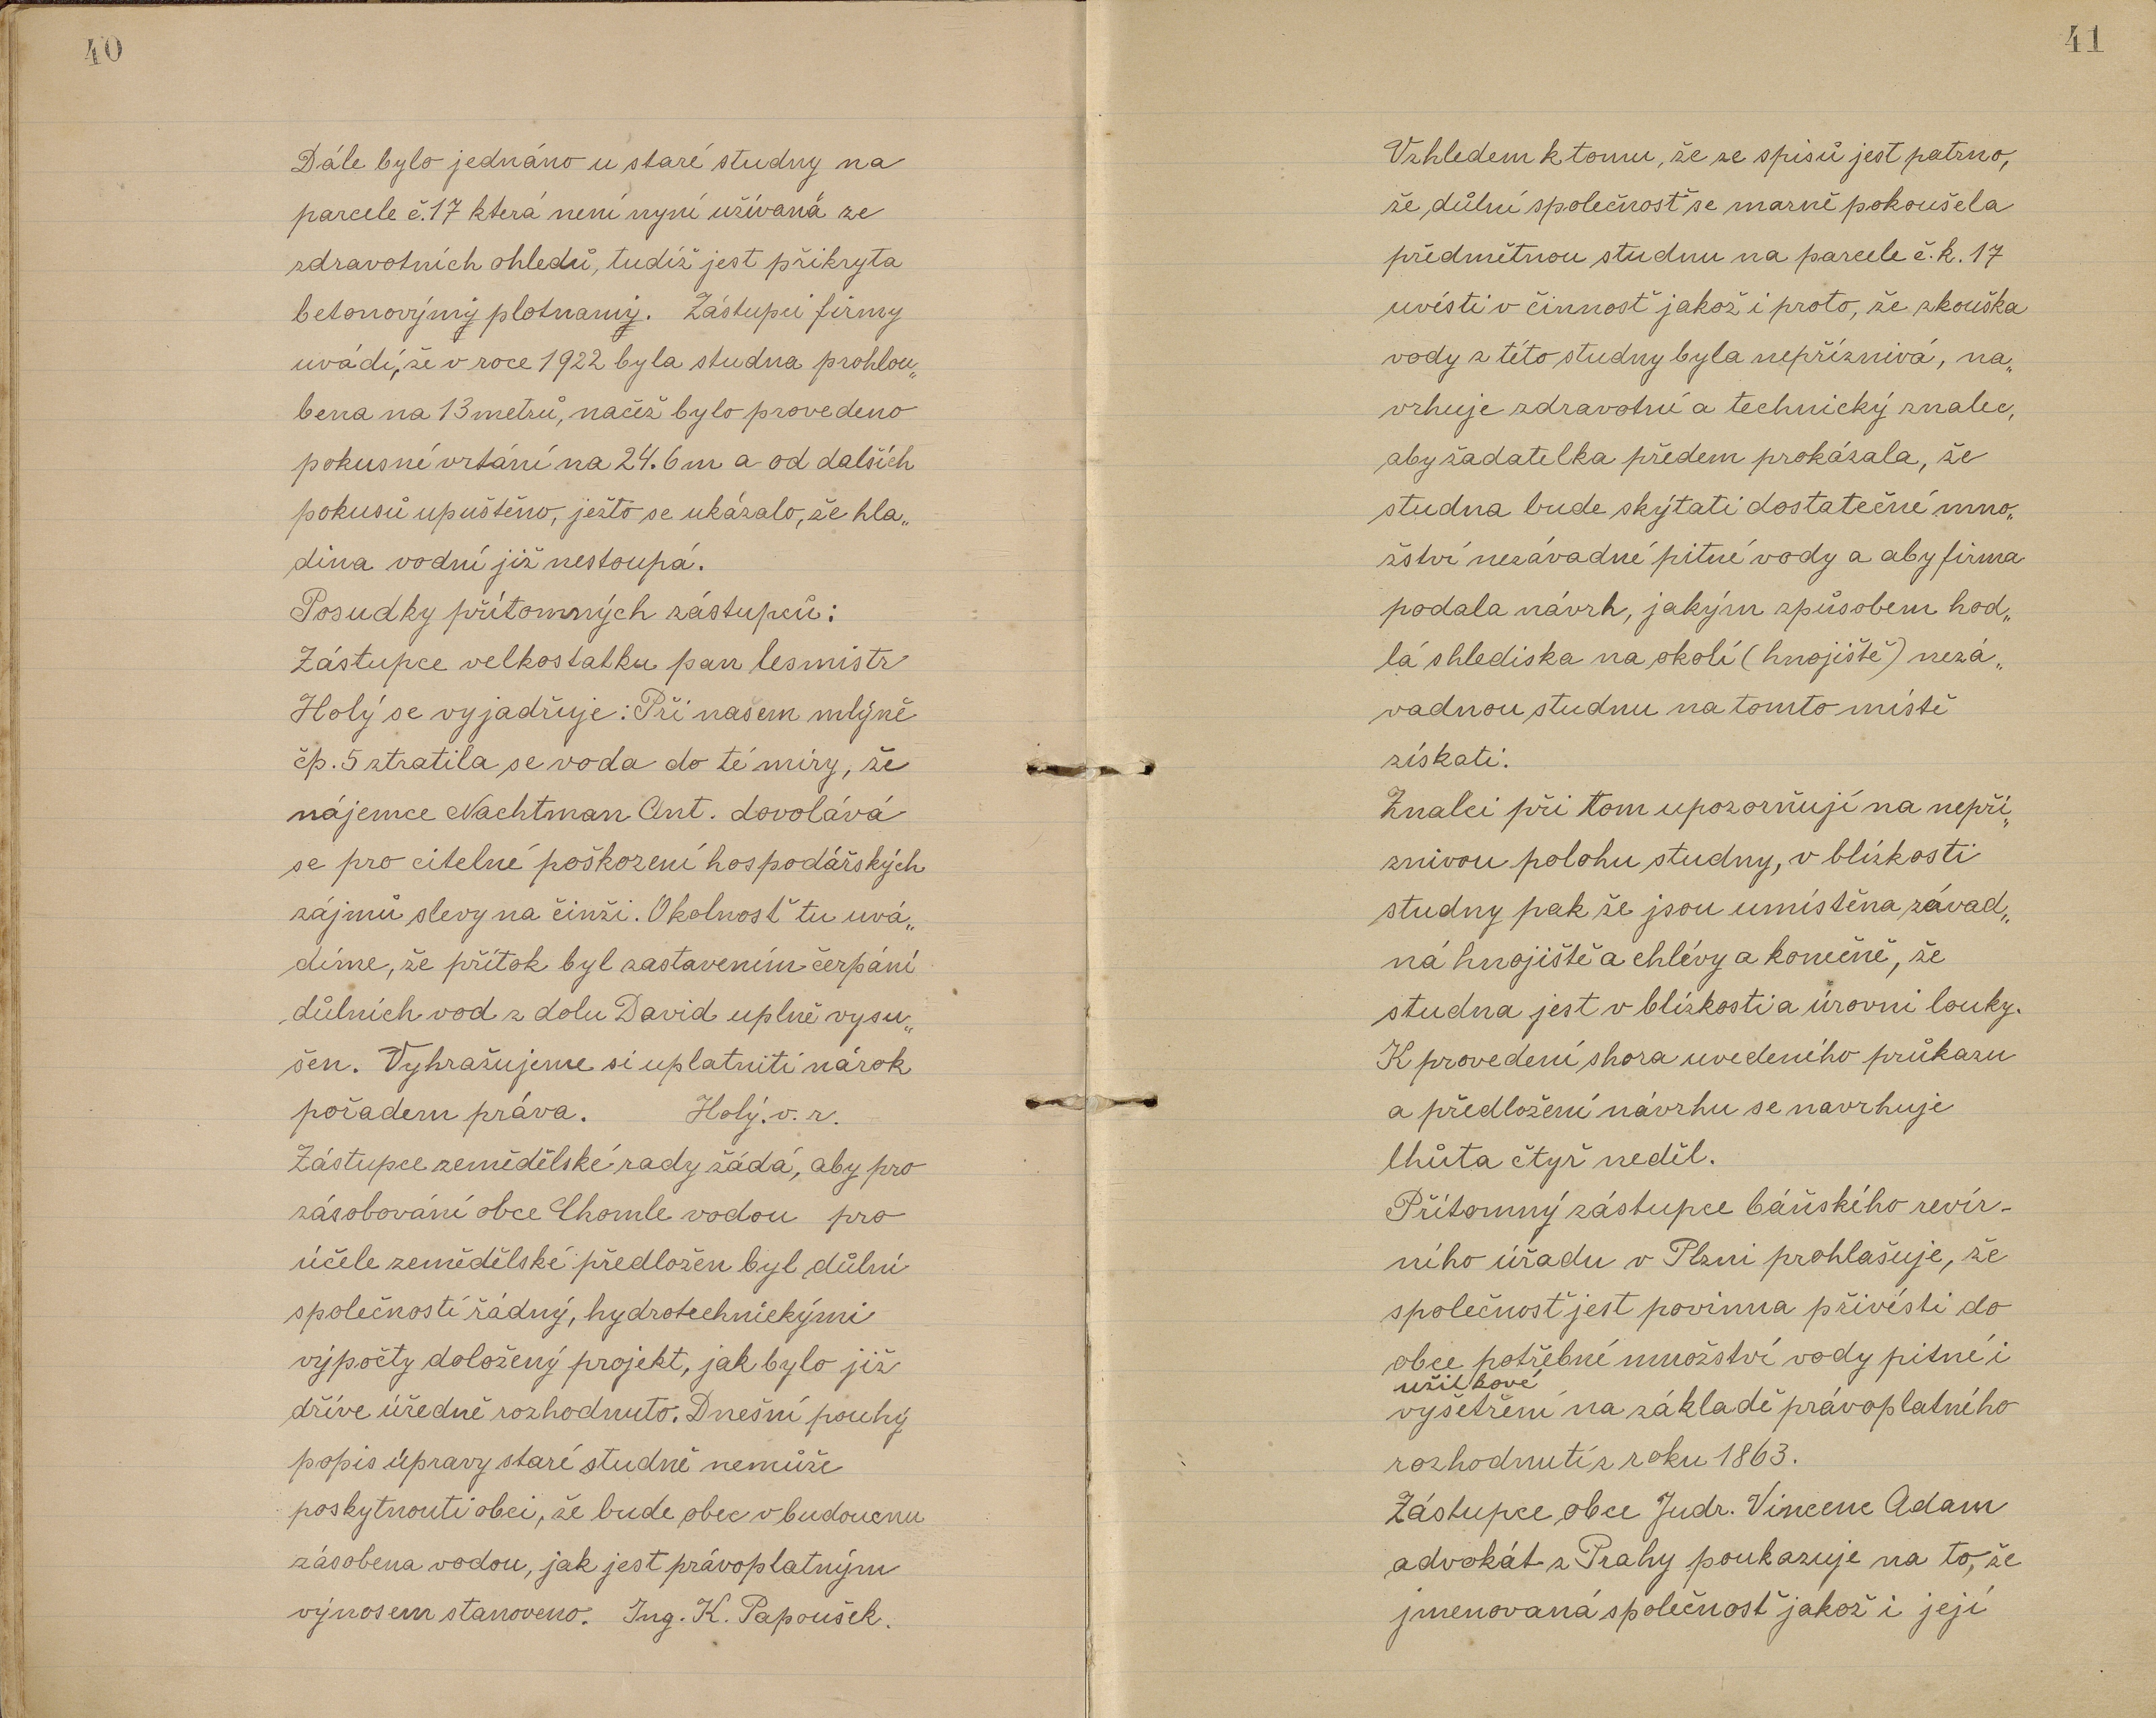 40
Dále bylo jednáno u staré studny na
parcele č. 17 která není nyní užívaná ze
zdravotních ohledů, tudíž jest přikryta
betonovýmy plotnamy. Zástupci firmy
uvádí, že v roce 1922 byla studna prohlou„
bena na 13 metrů, načež bylo provedeno
pokusné vrtání na 24.6 m a od dalších
pokusů upuštěno, ježto se ukázalo, že hla„
dina vodní již nestoupá.
Posudky přítomných zástupců:
Zástupce velkostatku pan lesmistr
Holý se vyjadřuje: Při našem mlýně
čp. 5 ztratila se voda do té míry, že
nájemce Nachtman Ant. dovolává
se pro citelné poškození hospodářských
zájmů slevy na činži. Okolnosť tu uvá„
díme, že přítok byl zastavením čerpání
důlních vod z dolu David uplně vysu„
šen. Vyhražujeme si uplatniti nárok
pořadem práva. Holý. v. r.
Zástupce zemědělské rady žádá, aby pro
zásobování obce Chomle vodou pro
účele zemědělské předložen byl důlní
společností řádný, hydrotechnickými
výpočty doložený projekt, jak bylo již
dříve úředně rozhodnuto. Dnešní pouhý
popis úpravy staré studně nemůže
poskytnouti obci, že bude obec v budoucnu
zásobena vodou, jak jest právoplatným
výnosem stanoveno. Ing. K. Papoušek.
41
Vzhledem k tomu, že ze spisů jest patrno,
že důlní společnosť se marně pokoušela
předmětnou studnu na parcele č. k. 17
uvésti v činnosť jakož i proto, že zkouška
vody z této studny byla nepříznivá, na„
vrhuje zdravotní a technický znalec,
aby žadatelka předem prokázala, že
studna bude skýtati dostatečné mno„
žství nezávadné pitné vody a aby firma
podala návrh, jakým způsobem hod„
lá s hlediska na okolí (hnojiště) nezá„
vadnou studnu na tomto místě
získati.
Znalci při tom upozorňují na nepří„
znivou polohu studny, v blízkosti
studny pak že jsou umístěna závad„
ná hnojiště a chlévy a konečně, že
studna jest v blízkosti a úrovni louky.
K provedení shora uvedeného průkazu
a předložení návrhu se navrhuje
lhůta čtyř neděl.
Přítomný zástupce báňského revír-
ního úřadu v Plzni prohlašuje, že
společnosť jest povinna přivésti do
obce potřebné množství vody pitné i
užitkové
vyšetření na základě právoplatného
rozhodnutí z roku 1863.
Zástupce obce Judr. Vincenc Adam
advokát z Prahy poukazuje na to, že
jmenovaná společnosť jakož i její